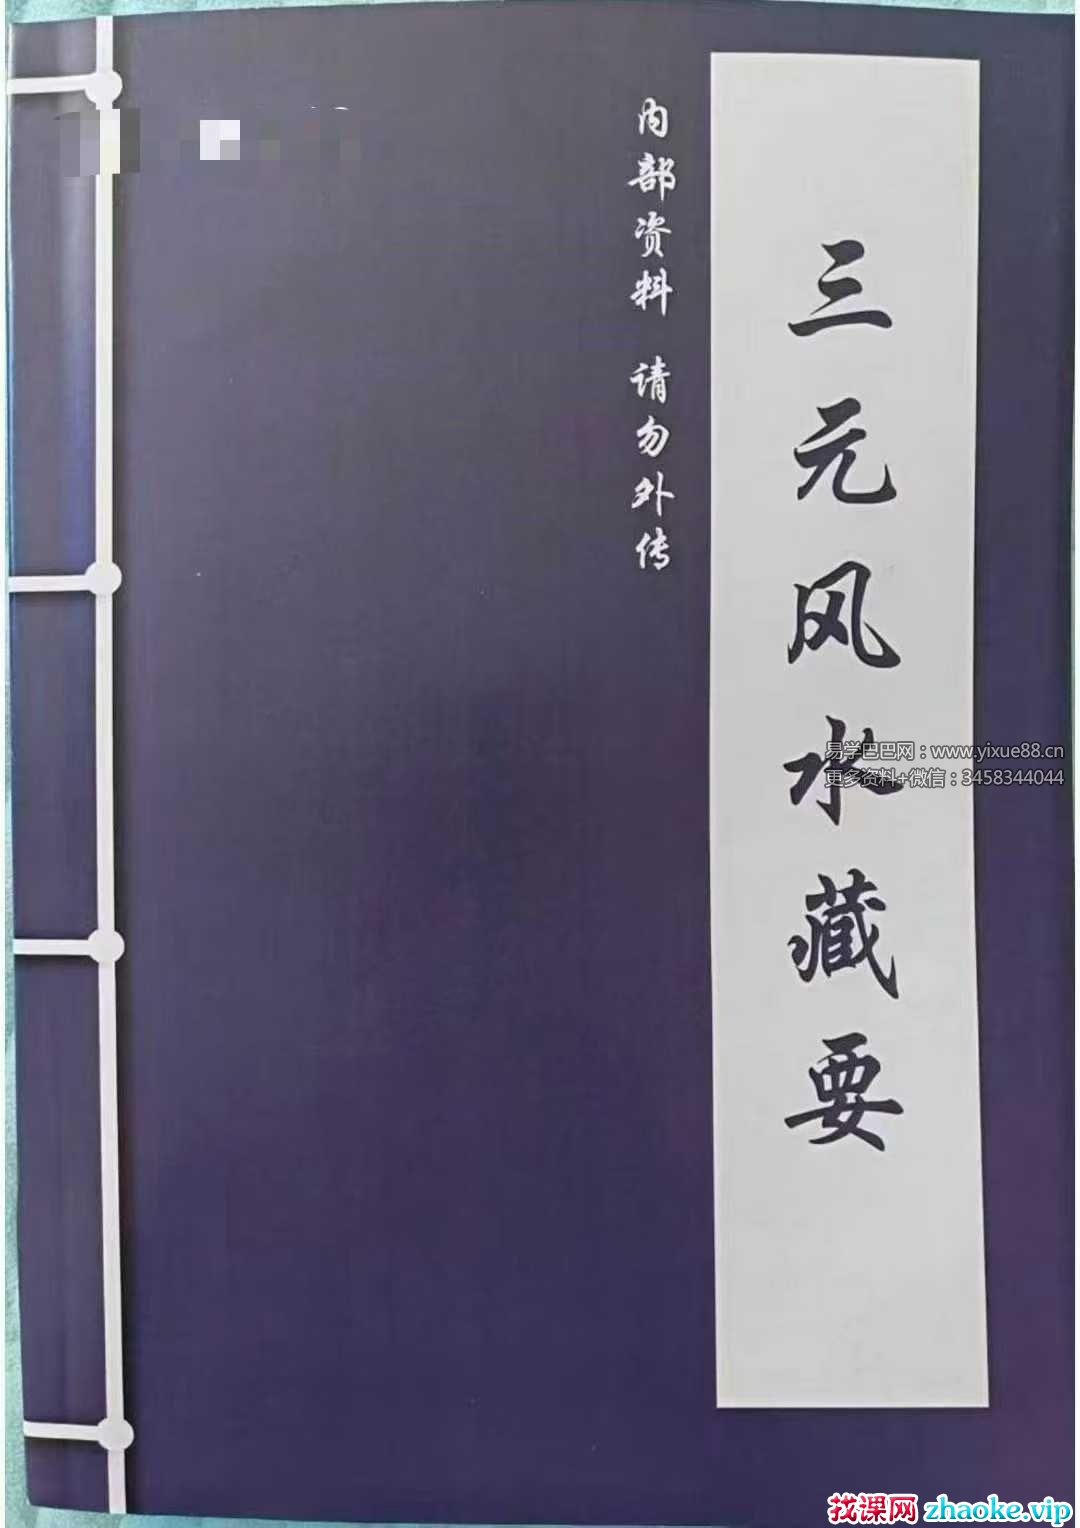 三元风水藏要
内部资料 请勿外传
易学巴巴网：www.yixue88.cn
更多资料+微信：3458344044
找课网 zhaoke.vip